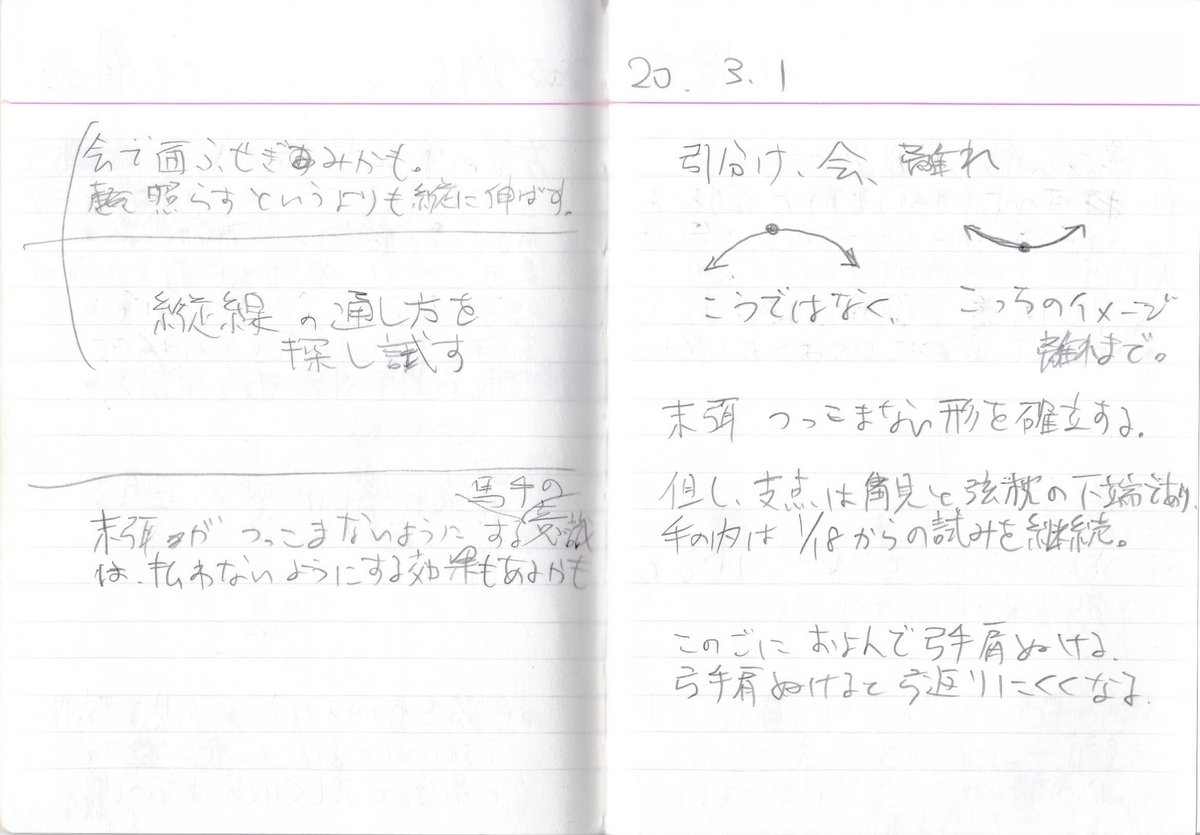 会で面ふせぎみかも。
照らすというよりも縦に伸ばす。
縦線の通し方を
探し試す
馬手の
末弭がつっこまないようにする意識
は、払わないようにする効果もあるかも
20. 3. 1
引分け、会、離れ
こうではなく、 こっちのイメージ
離れまで。
末弭 つっこまない形を確立する。
但し、支点は角見と弦枕の下端であり、
手の内は 1/18からの試みを継続。
このごにおよんで弓手肩ぬける。
弓手肩ぬけると弓返りしにくくなる。